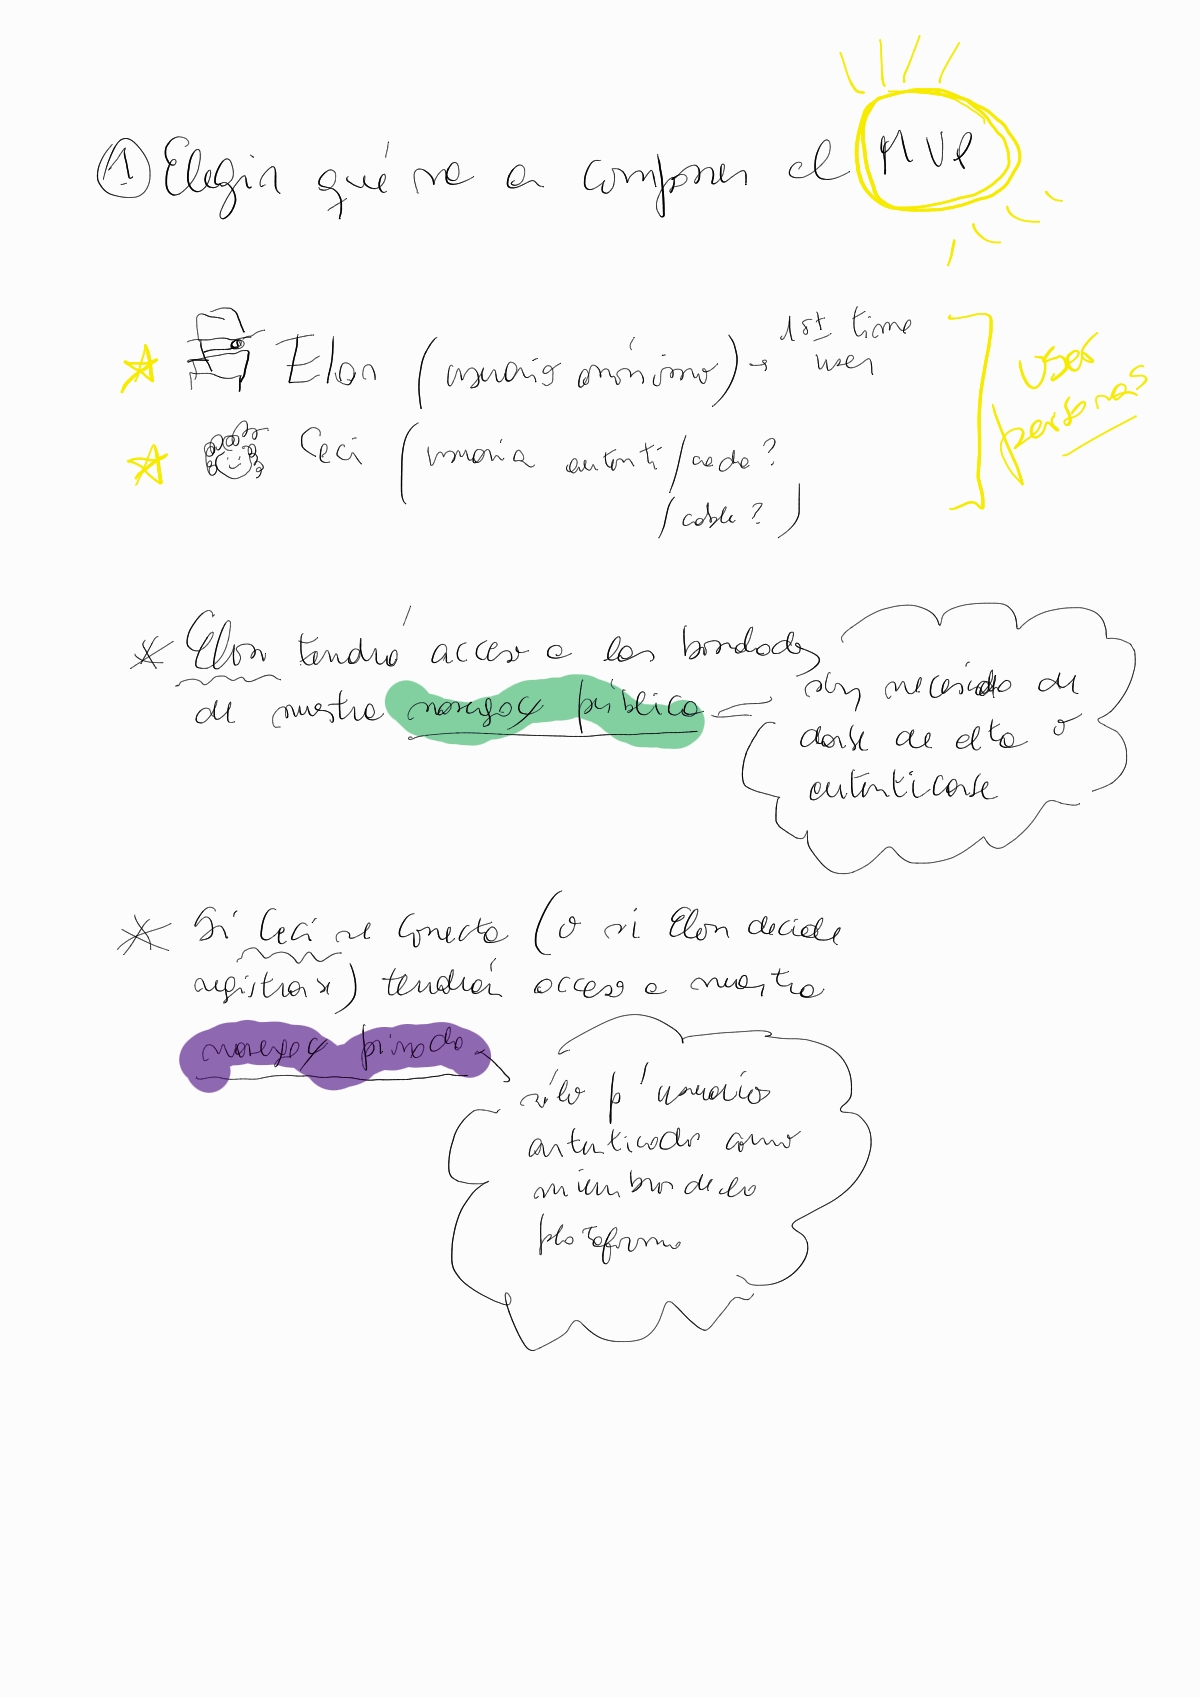 ① Elegir qué va a componer el MVP
Elon (usuario anónimo) → 1st time
user
Ceci (usuaria autenti/cada?
/cable?)
User
personas
* Elon tendrá acceso a las bondades
de nuestra público
sin necesidad de
darse de alta o
autenticarse
* Si Ceci se conecta (o si Elon decide
registrarse) tendrán acceso a nuestra
privado
sólo p' usuario
autenticados como
miembros de la
plataforma